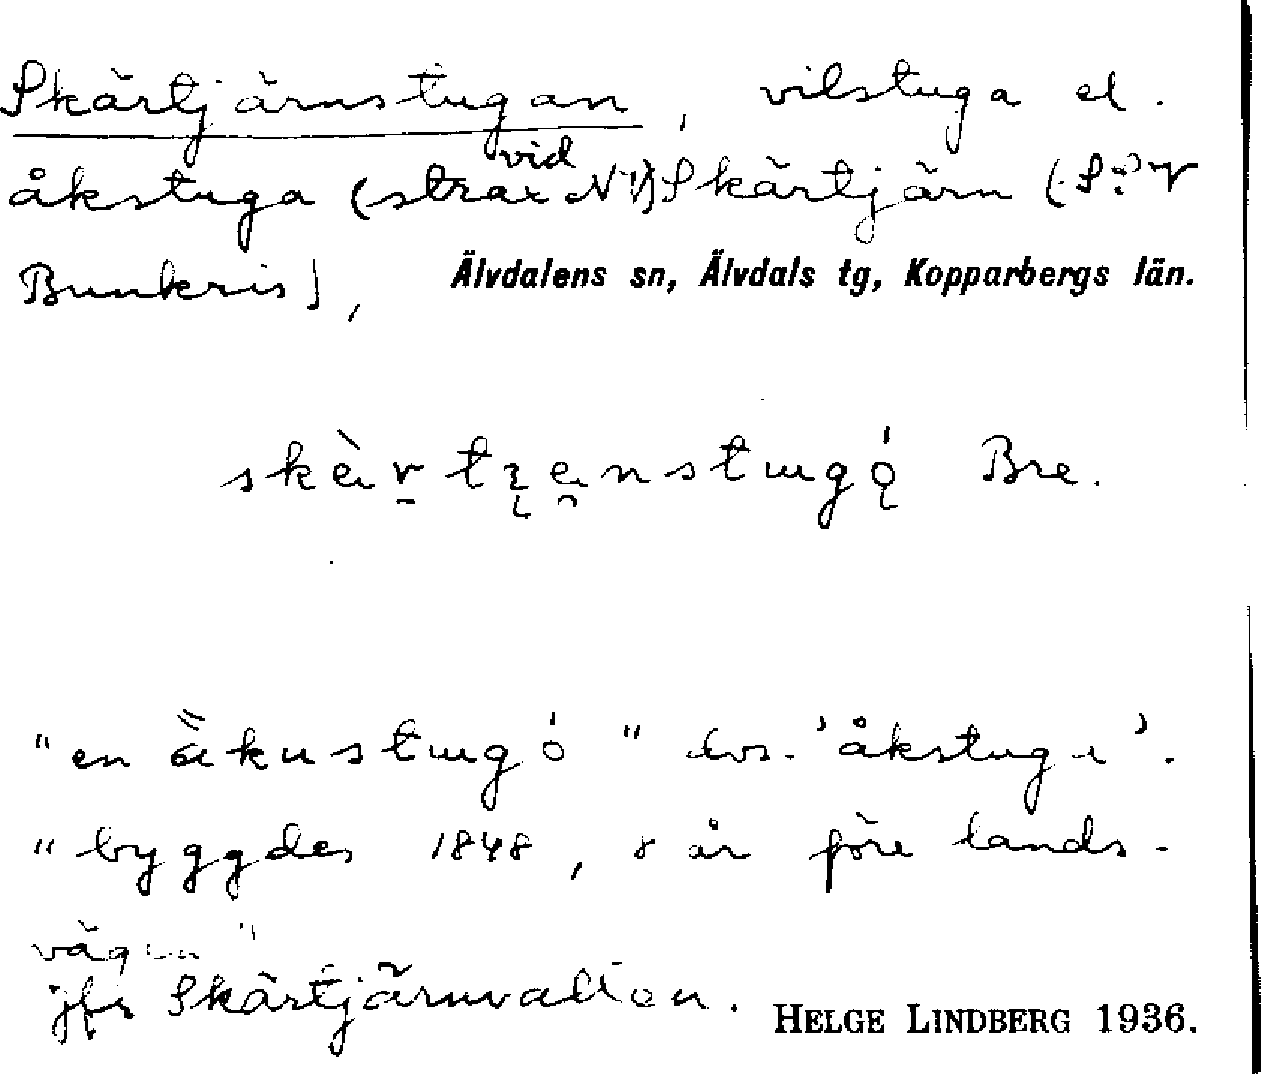 Skärtjärnstugan, vilstuga el.
åkstuga (strax N vid Skärtjärn (S
Bunkris), Älvdalens sn, Älvdals tg, Kopparbergs län.
Bre.
"en stugó" dvs. 'åkstuga'.
"byggdes 1848, 8 år före lands-
vägen"
jfr Skärtjärnvallen. HELGE LINDBERG 1936.